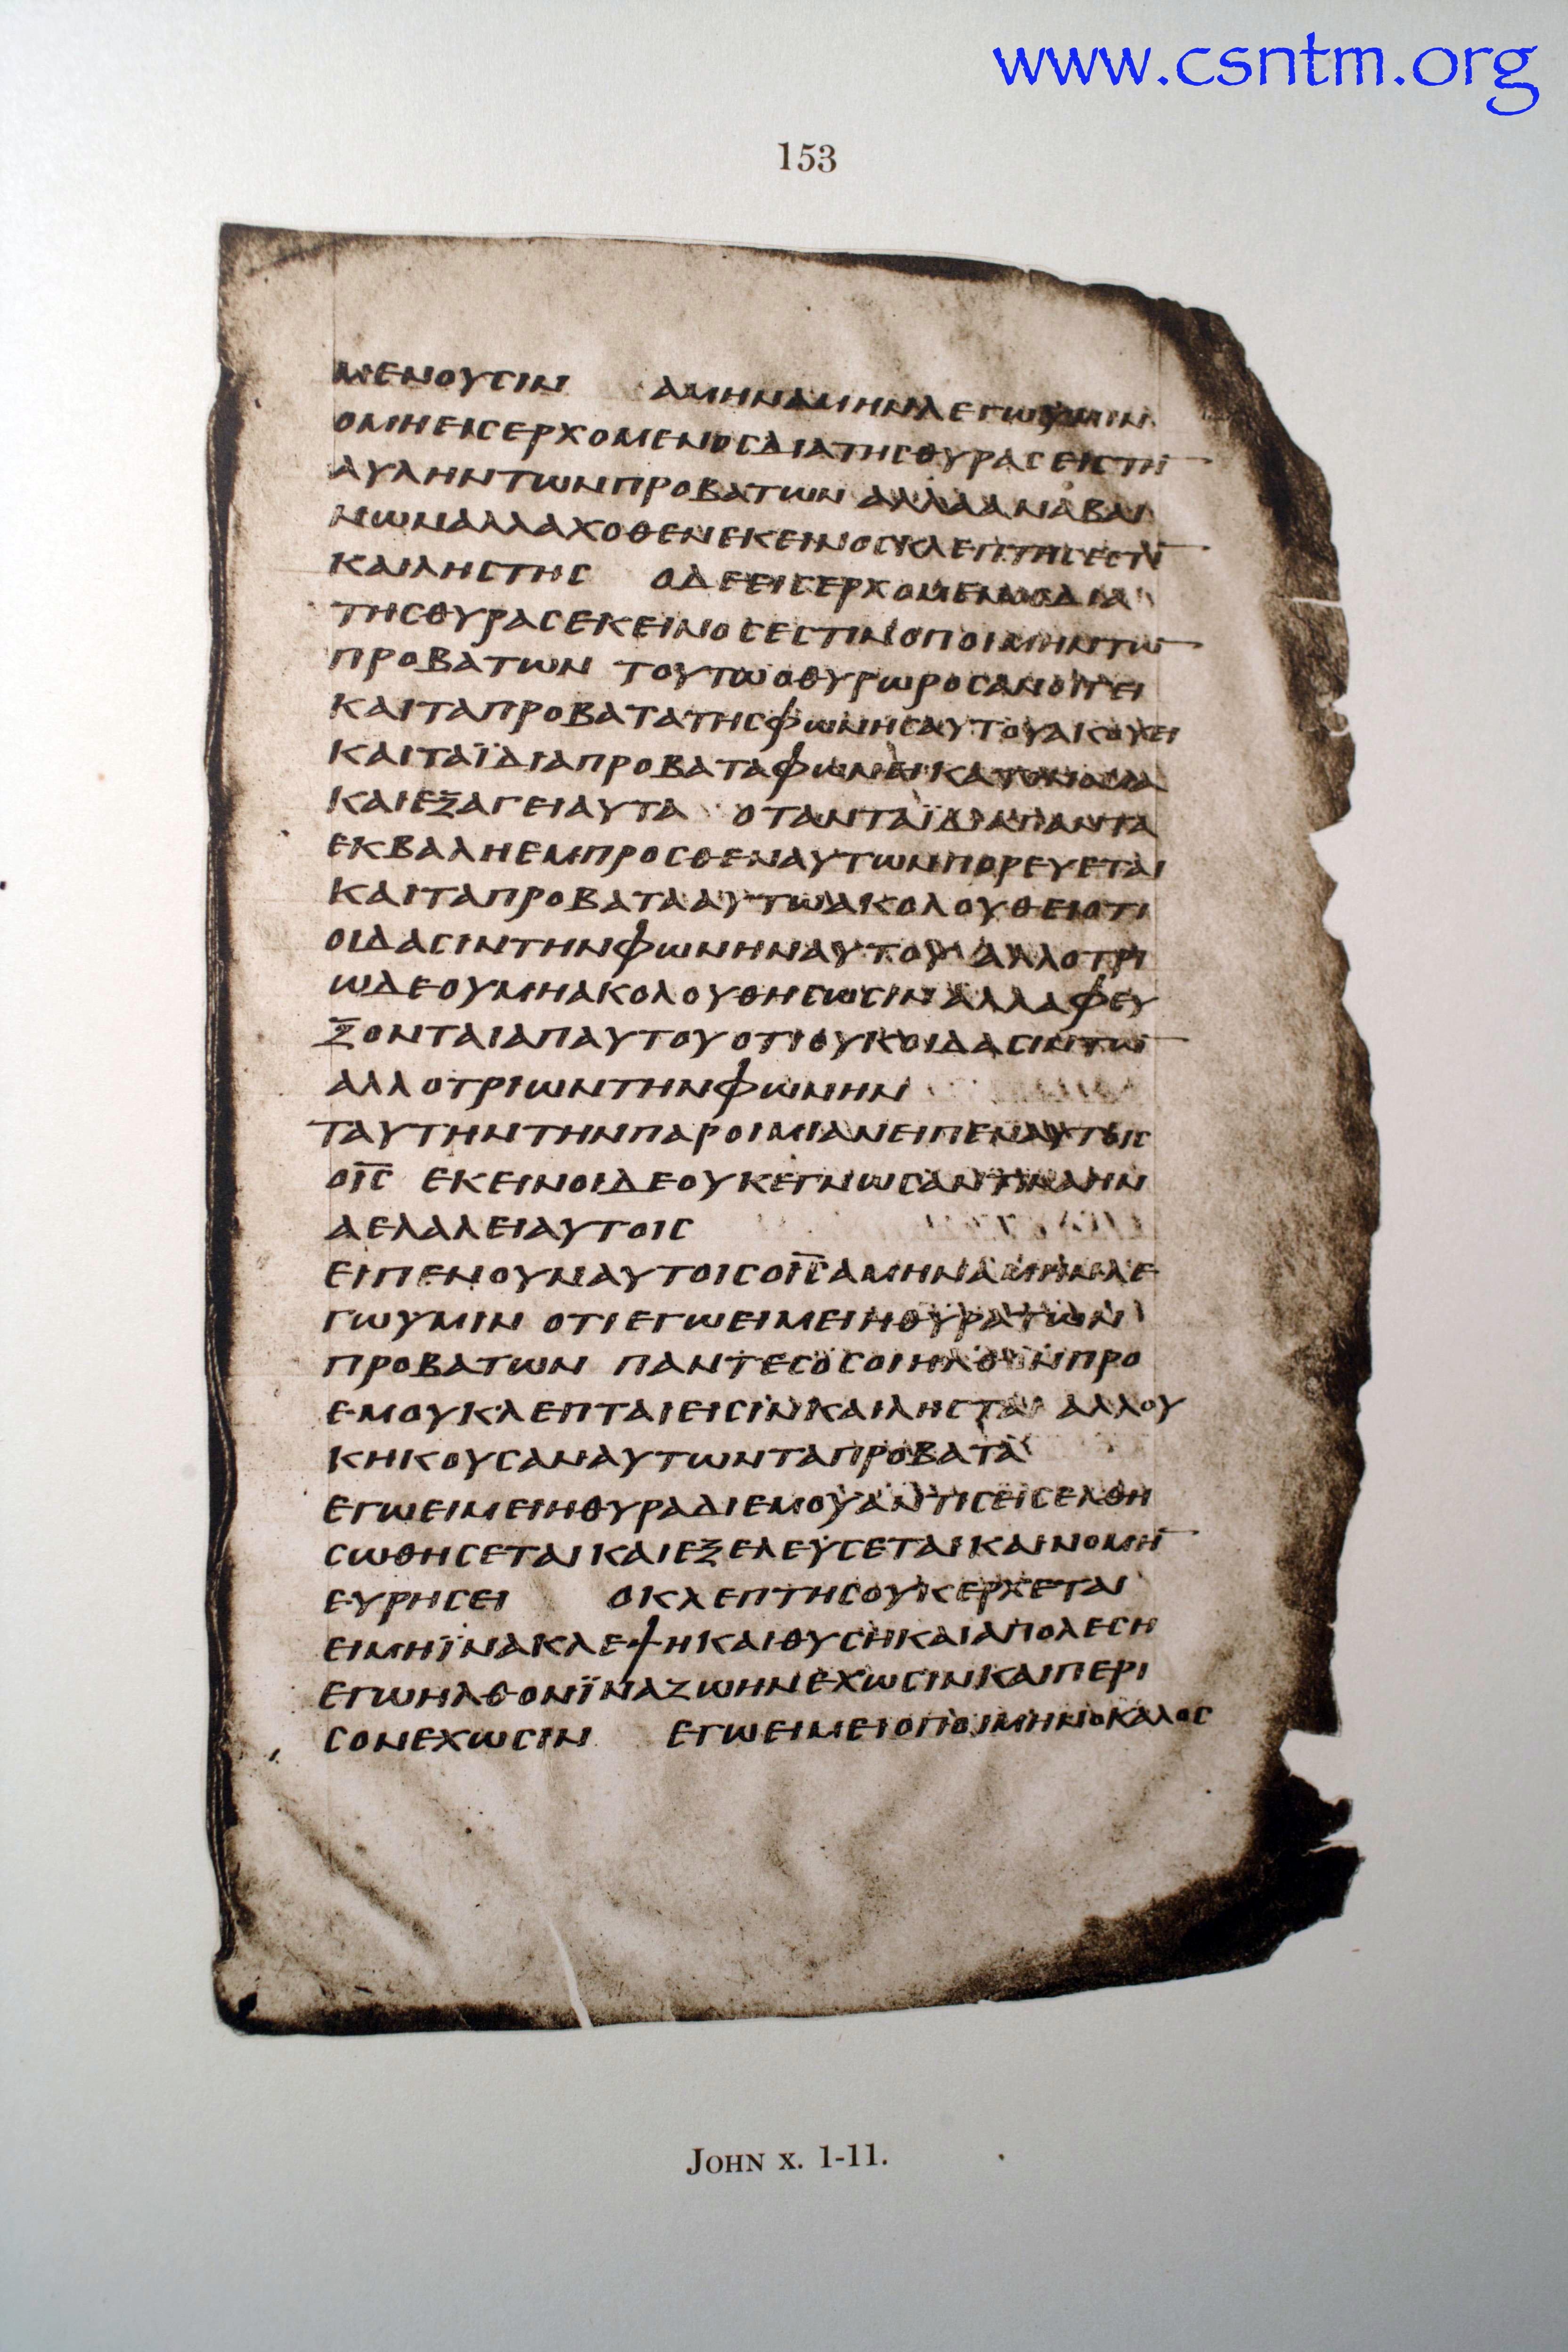 www.csntm.org
153
ΜΕΝΟΥϹΙΝ ΑΜΗΝΑΜΗΝΛΕΓΩΥΜΙΝ
ΟΜΗΕΙϹΕΡΧΟΜΕΝΟϹΔΙΑΤΗϹΘΥΡΑϹΕΙϹΤΗ̅
ΑΥΛΗΝΤΩΝΠΡΟΒΑΤΩΝ ΑΛΛΑΑΝΑΒΑΙ
ΝΩΝΑΛΛΑΧΟΘΕΝΕΚΕΙΝΟϹΚΛΕΠΤΗϹΕϹΤΙ̅
ΚΑΙΛΗϹΤΗϹ ΟΔΕΕΙϹΕΡΧΟΜΕΝΟϹΔΙΑ
ΤΗϹΘΥΡΑϹΕΚΕΙΝΟϹΕϹΤΙΝΟΠΟΙΜΗΝΤΩ̅
ΠΡΟΒΑΤΩΝ ΤΟΥΤΩΟΘΥΡΩΡΟϹΑΝΟΙΓΕΙ
ΚΑΙΤΑΠΡΟΒΑΤΑΤΗϹΦΩΝΗϹΑΥΤΟΥΑΚΟΥΕΙ
ΚΑΙΤΑΪΔΙΑΠΡΟΒΑΤΑΦΩΝΕΙΚΑΤΟΝΟΜΑ
ΚΑΙΕΞΑΓΕΙΑΥΤΑ ΟΤΑΝΤΑΪΔΙΑΠΑΝΤΑ
ΕΚΒΑΛΗΕΜΠΡΟϹΘΕΝΑΥΤΩΝΠΟΡΕΥΕΤΑΙ
ΚΑΙΤΑΠΡΟΒΑΤΑΑΥΤΩΑΚΟΛΟΥΘΕΙΟΤΙ
ΟΙΔΑϹΙΝΤΗΝΦΩΝΗΝΑΥΤΟΥ ΑΛΛΟΤΡΙ
ΩΔΕΟΥΜΗΑΚΟΛΟΥΘΗϹΩϹΙΝΑΛΛΑΦΕΥ
ΞΟΝΤΑΙΑΠΑΥΤΟΥΟΤΙΟΥΚΟΙΔΑϹΙΝΤΩ̅
ΑΛΛΟΤΡΙΩΝΤΗΝΦΩΝΗΝ
ΤΑΥΤΗΝΤΗΝΠΑΡΟΙΜΙΑΝΕΙΠΕΝΑΥΤΟΙϹ
ΟΙ̅Ϲ̅ ΕΚΕΙΝΟΙΔΕΟΥΚΕΓΝΩϹΑΝΤΙΝΑΗΝ
ΑΕΛΑΛΕΙΑΥΤΟΙϹ
ΕΙΠΕΝΟΥΝΑΥΤΟΙϹΟΙ̅Ϲ̅ΑΜΗΝΑΜΗΝΛΕ
ΓΩΥΜΙΝ ΟΤΙΕΓΩΕΙΜΕΙΗΘΥΡΑΤΩΝ
ΠΡΟΒΑΤΩΝ ΠΑΝΤΕϹΟϹΟΙΗΛΘΟΝΠΡΟ
ΕΜΟΥΚΛΕΠΤΑΙΕΙϹΙΝΚΑΙΛΗϹΤΑΙ ΑΛΛΟΥ
ΚΗΚΟΥϹΑΝΑΥΤΩΝΤΑΠΡΟΒΑΤΑ
ΕΓΩΕΙΜΕΙΗΘΥΡΑΔΙΕΜΟΥΑΝΤΙϹΕΙϹΕΛΘΗ
ϹΩΘΗϹΕΤΑΙΚΑΙΕΞΕΛΕΥϹΕΤΑΙΚΑΙΝΟΜΗ̅
ΕΥΡΗϹΕΙ ΟΚΛΕΠΤΗϹΟΥΚΕΡΧΕΤΑΙ
ΕΙΜΗΪΝΑΚΛΕΨΗΚΑΙΘΥϹΗΚΑΙΑΠΟΛΕϹΗ
ΕΓΩΗΛΘΟΝΪΝΑΖΩΗΝΕΧΩϹΙΝΚΑΙΠΕΡΙ
ϹΟΝΕΧΩϹΙΝ ΕΓΩΕΙΜΕΙΟΠΟΙΜΗΝΟΚΑΛΟϹ
JOHN X. 1-11.